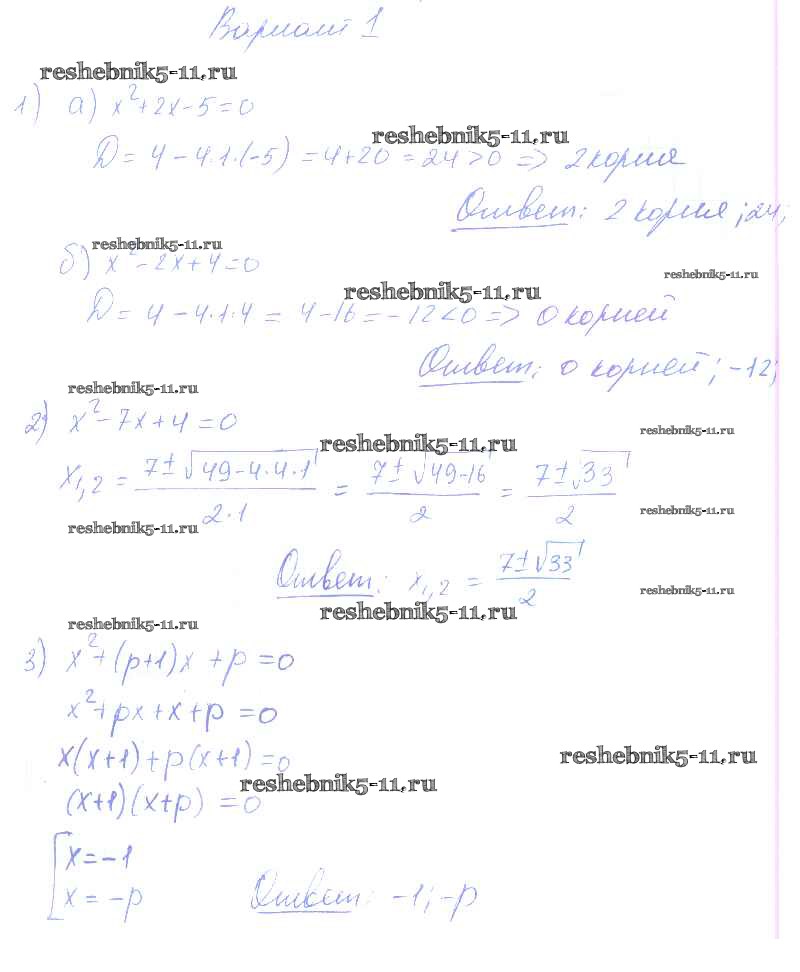 Вариант 1
reshebnik5-11.ru
1) а) x²+2x-5=0
reshebnik5-11.ru
D = 4 - 4·1·(-5) = 4+20 = 24 > 0 => 2 корня
Ответ: 2 корня; 24;
reshebnik5-11.ru
б) x²-2x+4=0
reshebnik5-11.ru
reshebnik5-11.ru
D = 4 - 4·1·4 = 4-16 = -12 < 0 => 0 корней
Ответ: 0 корней; -12;
reshebnik5-11.ru
2) x²-7x+4=0
reshebnik5-11.ru
reshebnik5-11.ru
x1,2 = (7±√49-4·4·1)/(2·1) = (7±√49-16)/2 = (7±√33)/2
reshebnik5-11.ru
reshebnik5-11.ru
Ответ: x1,2 = (7±√33)/2
reshebnik5-11.ru
reshebnik5-11.ru
reshebnik5-11.ru
3) x²+(p+1)x+p=0
x²+px+x+p=0
x(x+1)+p(x+1)=0
reshebnik5-11.ru
reshebnik5-11.ru
(x+1)(x+p)=0
[x=-1
x=-p
Ответ: -1; -p